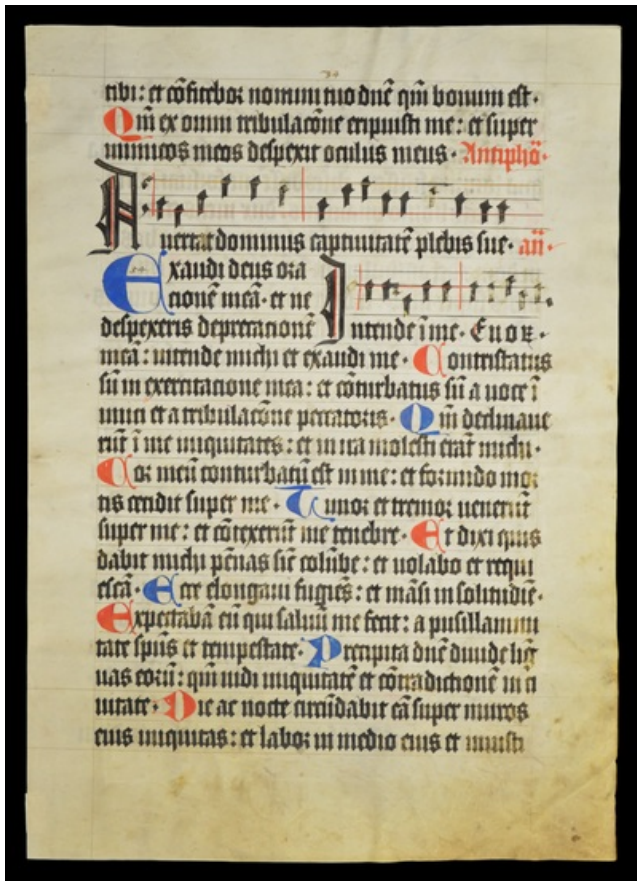 tibi : et cōfitebor nomini tuo dn̄e qm̄ bonum est ·
Qm̄ ex omni tribulacōne eripuisti me : et super
inimicos meos despexit oculus meus · Antiphō·
Auertat dominus captiuitatē plebis sue · an̄ ·
Exaudi deus ora
cionē meā · et ne
despexeris deprecationē Intende ī me · Euoe ·
meā : intende michi et exaudi me · Contristatus
sū in exercitacione mea : et cōturbatus sū a uoce ī
imici et a tribulacōne peccatoris · Qm̄ declinaue
rūt ī me iniquitates : et in ira molesti erāt michi ·
Cor meū conturbatū est in me : et formido mor
tis cecidit super me · Timor et tremor uenerūt
super me : et cōtexerūt me tenebre · Et dixi quis
dabit michi pēnas siē colūbe : et uolabo et requi
escā · Ecce elongaui fugiēs : et māsi in solitudiē ·
Expectabā eū qui saluū me fecit : a pusillanimi
tate sp̄us et tempestate · Precipita dn̄e diuide liḡ
uas eorū : qm̄ uidi iniquitatē et cōtradictionē in ci
uitate · Die ac nocte circūdabit eā super muros
eius iniquitas : et labor in medio eius et iniusti